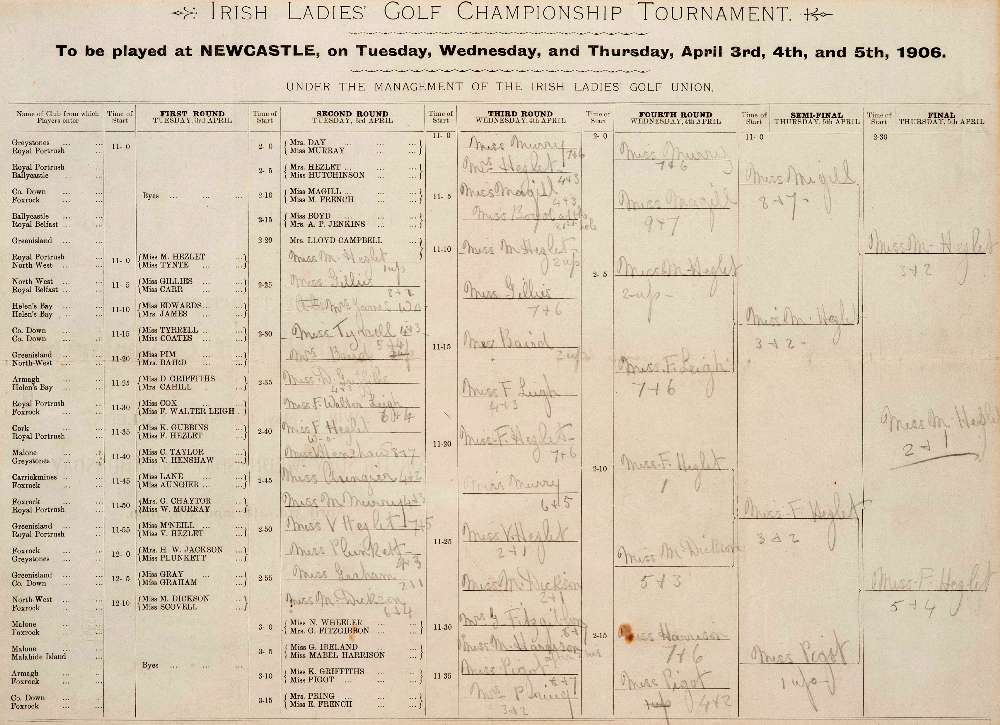 IRISH LADIES' GOLF CHAMPIONSHIP TOURNAMENT.
To be played at NEWCASTLE, on Tuesday, Wednesday, and Thursday, April 3rd, 4th, and 5th, 1906.
UNDER THE MANAGEMENT OF THE IRISH LADIES' GOLF UNION.
Name of Club from which Players enter
Time of Start
FIRST ROUND TUESDAY, 3rd APRIL
Time of Start
SECOND ROUND TUESDAY, 3rd APRIL
Time of Start
THIRD ROUND WEDNESDAY, 4th APRIL
Time of Start
FOURTH ROUND WEDNESDAY, 4th APRIL
Time of Start
SEMI-FINAL THURSDAY, 5th APRIL
Time of Start
FINAL THURSDAY, 5th APRIL
Greystones
Royal Portrush
Royal Portrush
Ballycastle
Co. Down
Foxrock
Ballycastle
Royal Belfast
Greenisland
Royal Portrush
North West
North West
Royal Belfast
Helen's Bay
Helen's Bay
Co. Down
Co. Down
Greenisland
North-West
Armagh
Helen's Bay
Royal Portrush
Foxrock
Cork
Royal Portrush
Malone
Greystones
Carrickmines
Foxrock
Foxrock
Royal Portrush
Greenisland
Royal Portrush
Foxrock
Greystones
Greenisland
Co. Down
North-West
Foxrock
Malone
Foxrock
Malone
Malahide Island
Armagh
Foxrock
Co. Down
Foxrock
11- 0
Byes ... ... ...
11- 0 Miss M. HEZLET
Miss TYNTE
11- 5 Miss GILLIES
Miss CARR
11-10 Miss EDWARDS
Mrs. JAMES
11-15 Miss TYRRELL
Miss COATES
11-20 Miss PIM
Mrs. BAIRD
11-25 Miss D. GRIFFITHS
Mrs. CAHILL
11-30 Miss COX
Miss F. WALTER LEIGH
11-35 Miss K. GUBBINS
Miss F. HEZLET
11-40 Miss C. TAYLOR
Miss V. HENSHAW
11-45 Miss LANE
Miss AUNGIER
11-50 Mrs. G. CHAYTOR
Miss W. MURRAY
11-55 Miss M'NEILL
Miss V. HEZLET
12- 0 Mrs. H. W. JACKSON
Miss PLUNKETT
12- 5 Miss GRAY
Miss GRAHAM
12-10 Miss M. DICKSON
Miss SCOVELL
Byes ... ... ...
2- 0 Mrs. DAY
Miss MURRAY
2- 5 Mrs. HEZLET
Miss HUTCHINSON
2-10 Miss MAGILL
Miss M. FRENCH
2-15 Miss BOYD
Mrs. A. P. JENKINS
2-20 Mrs. LLOYD CAMPBELL
Miss M. Hezlet
1 up
2-25 Miss Gillies
Mrs James W.O
2-30 Miss Tyrrell 4&3
Mrs Baird
2-35 Miss D. Griffiths
Miss F. Walter Leigh
6&4
2-40 Miss F Hezlet
W.O
Miss Henshaw 8&7
2-45 Miss Aungier
Miss M Murray
2-50 Miss V Hezlet 7&5
Miss Plunkett
2-55 Miss Graham
Miss M. Dickson
3- 0 Miss N. WHEELER
Mrs. G. FITZGIBBON
3- 5 Miss G. IRELAND
Miss MABEL HARRISON
3-10 Miss K. GRIFFITHS
Miss PIGOT
3-15 Mrs. PRING
Miss E. FRENCH
11- 0 Miss Murray
7&6
Mrs Hezlet
4&3
11- 5 Miss Magill
4&3
Miss Boyd
11-10 Miss M Hezlet
2 up
Miss Gillies
7&6
11-15 Mrs Baird
2 up
Miss F Leigh
4&3
11-20 Miss F. Hezlet
7&6
Miss Murry
6&5
11-25 Miss V. Hezlet
2&1
Miss M Dickson
11-30 Mrs G. Fitzgibbon
Miss M Harrison
11-35 Miss Pigot
8&7
Mrs Pring
3&2
2- 0 Miss Murray
7&6
Miss Magill
9&7
2- 5 Miss M Hezlet
2 up
Miss F. Leigh
7&6
2-10 Miss F. Hezlet
1
Miss M Dickson
5&3
2-15 Miss Harrison
7&6
Miss Pigot
4&2
11- 0 Miss Magill
8&7
Miss M. Hezlet
3&2
Miss F. Hezlet
3&2
Miss Pigot
1 up
2-30
Miss M. Hezlet
3&2
Miss M. Hezlet
2&1
Miss F. Hezlet
5&4